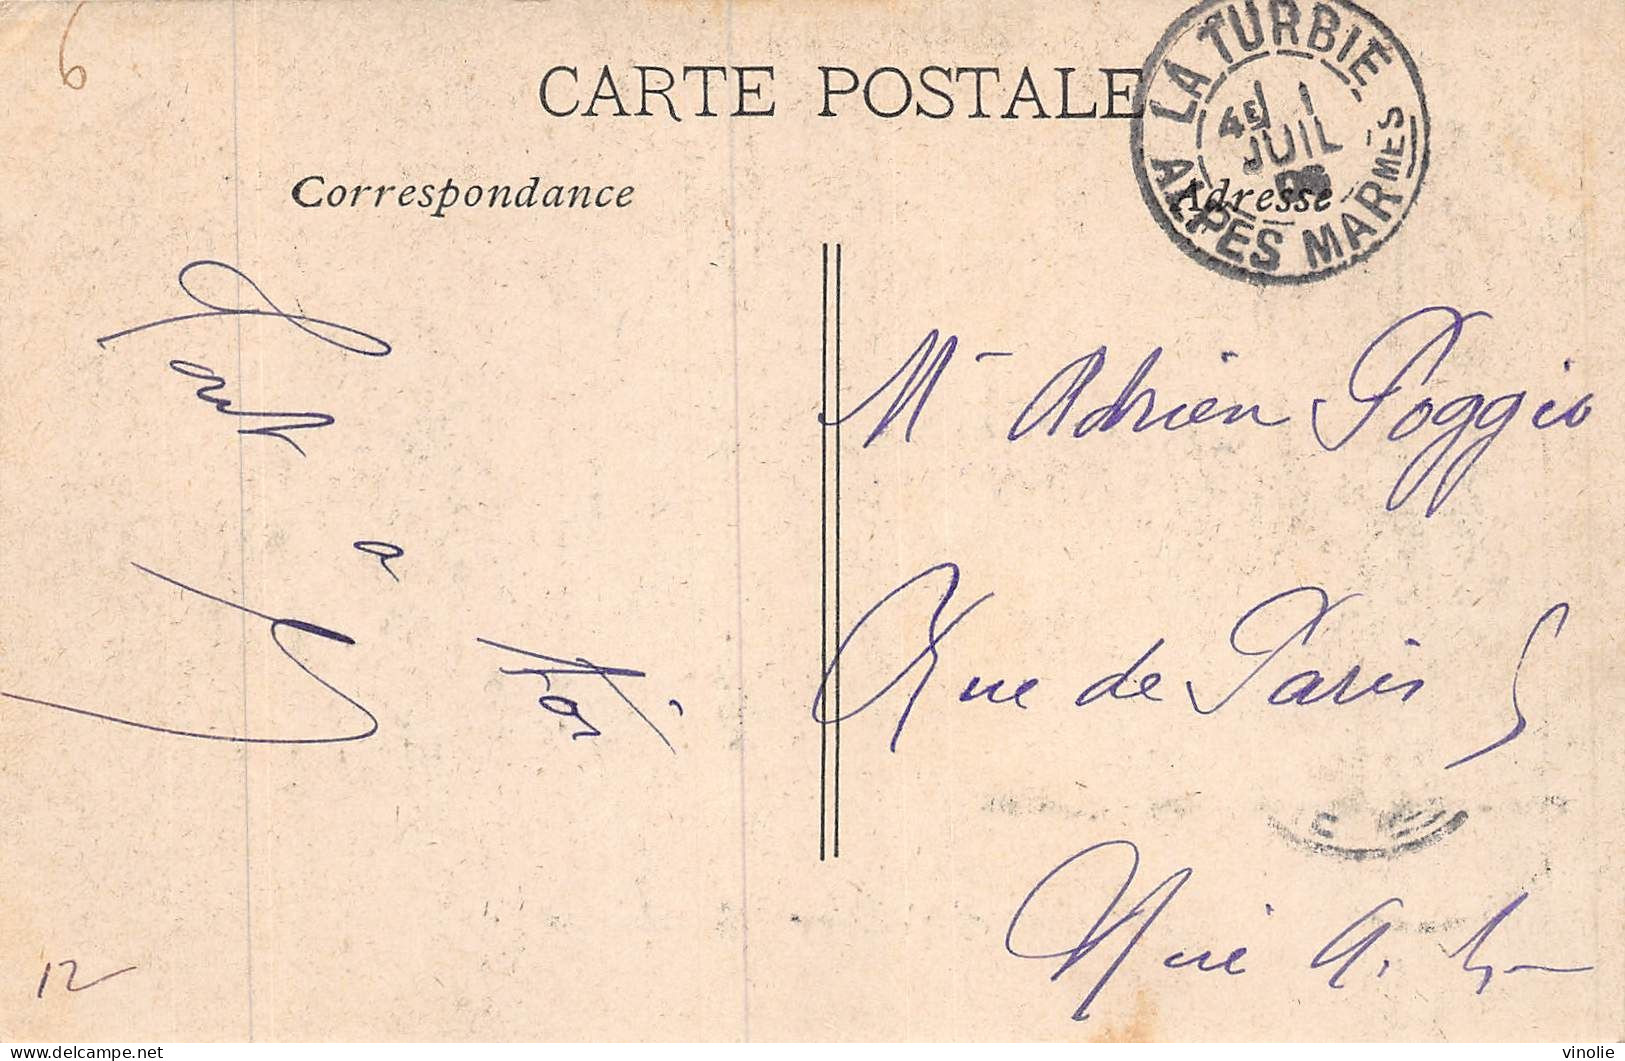 6
CARTE POSTALE
LA TURBIE
4E 1
JUIL
ALPES MARMES
Correspondance
Adresse
Tout
a
toi
Mr Adrien Poggio
Rue de Paris 5
Nice A. M
12
vinolie